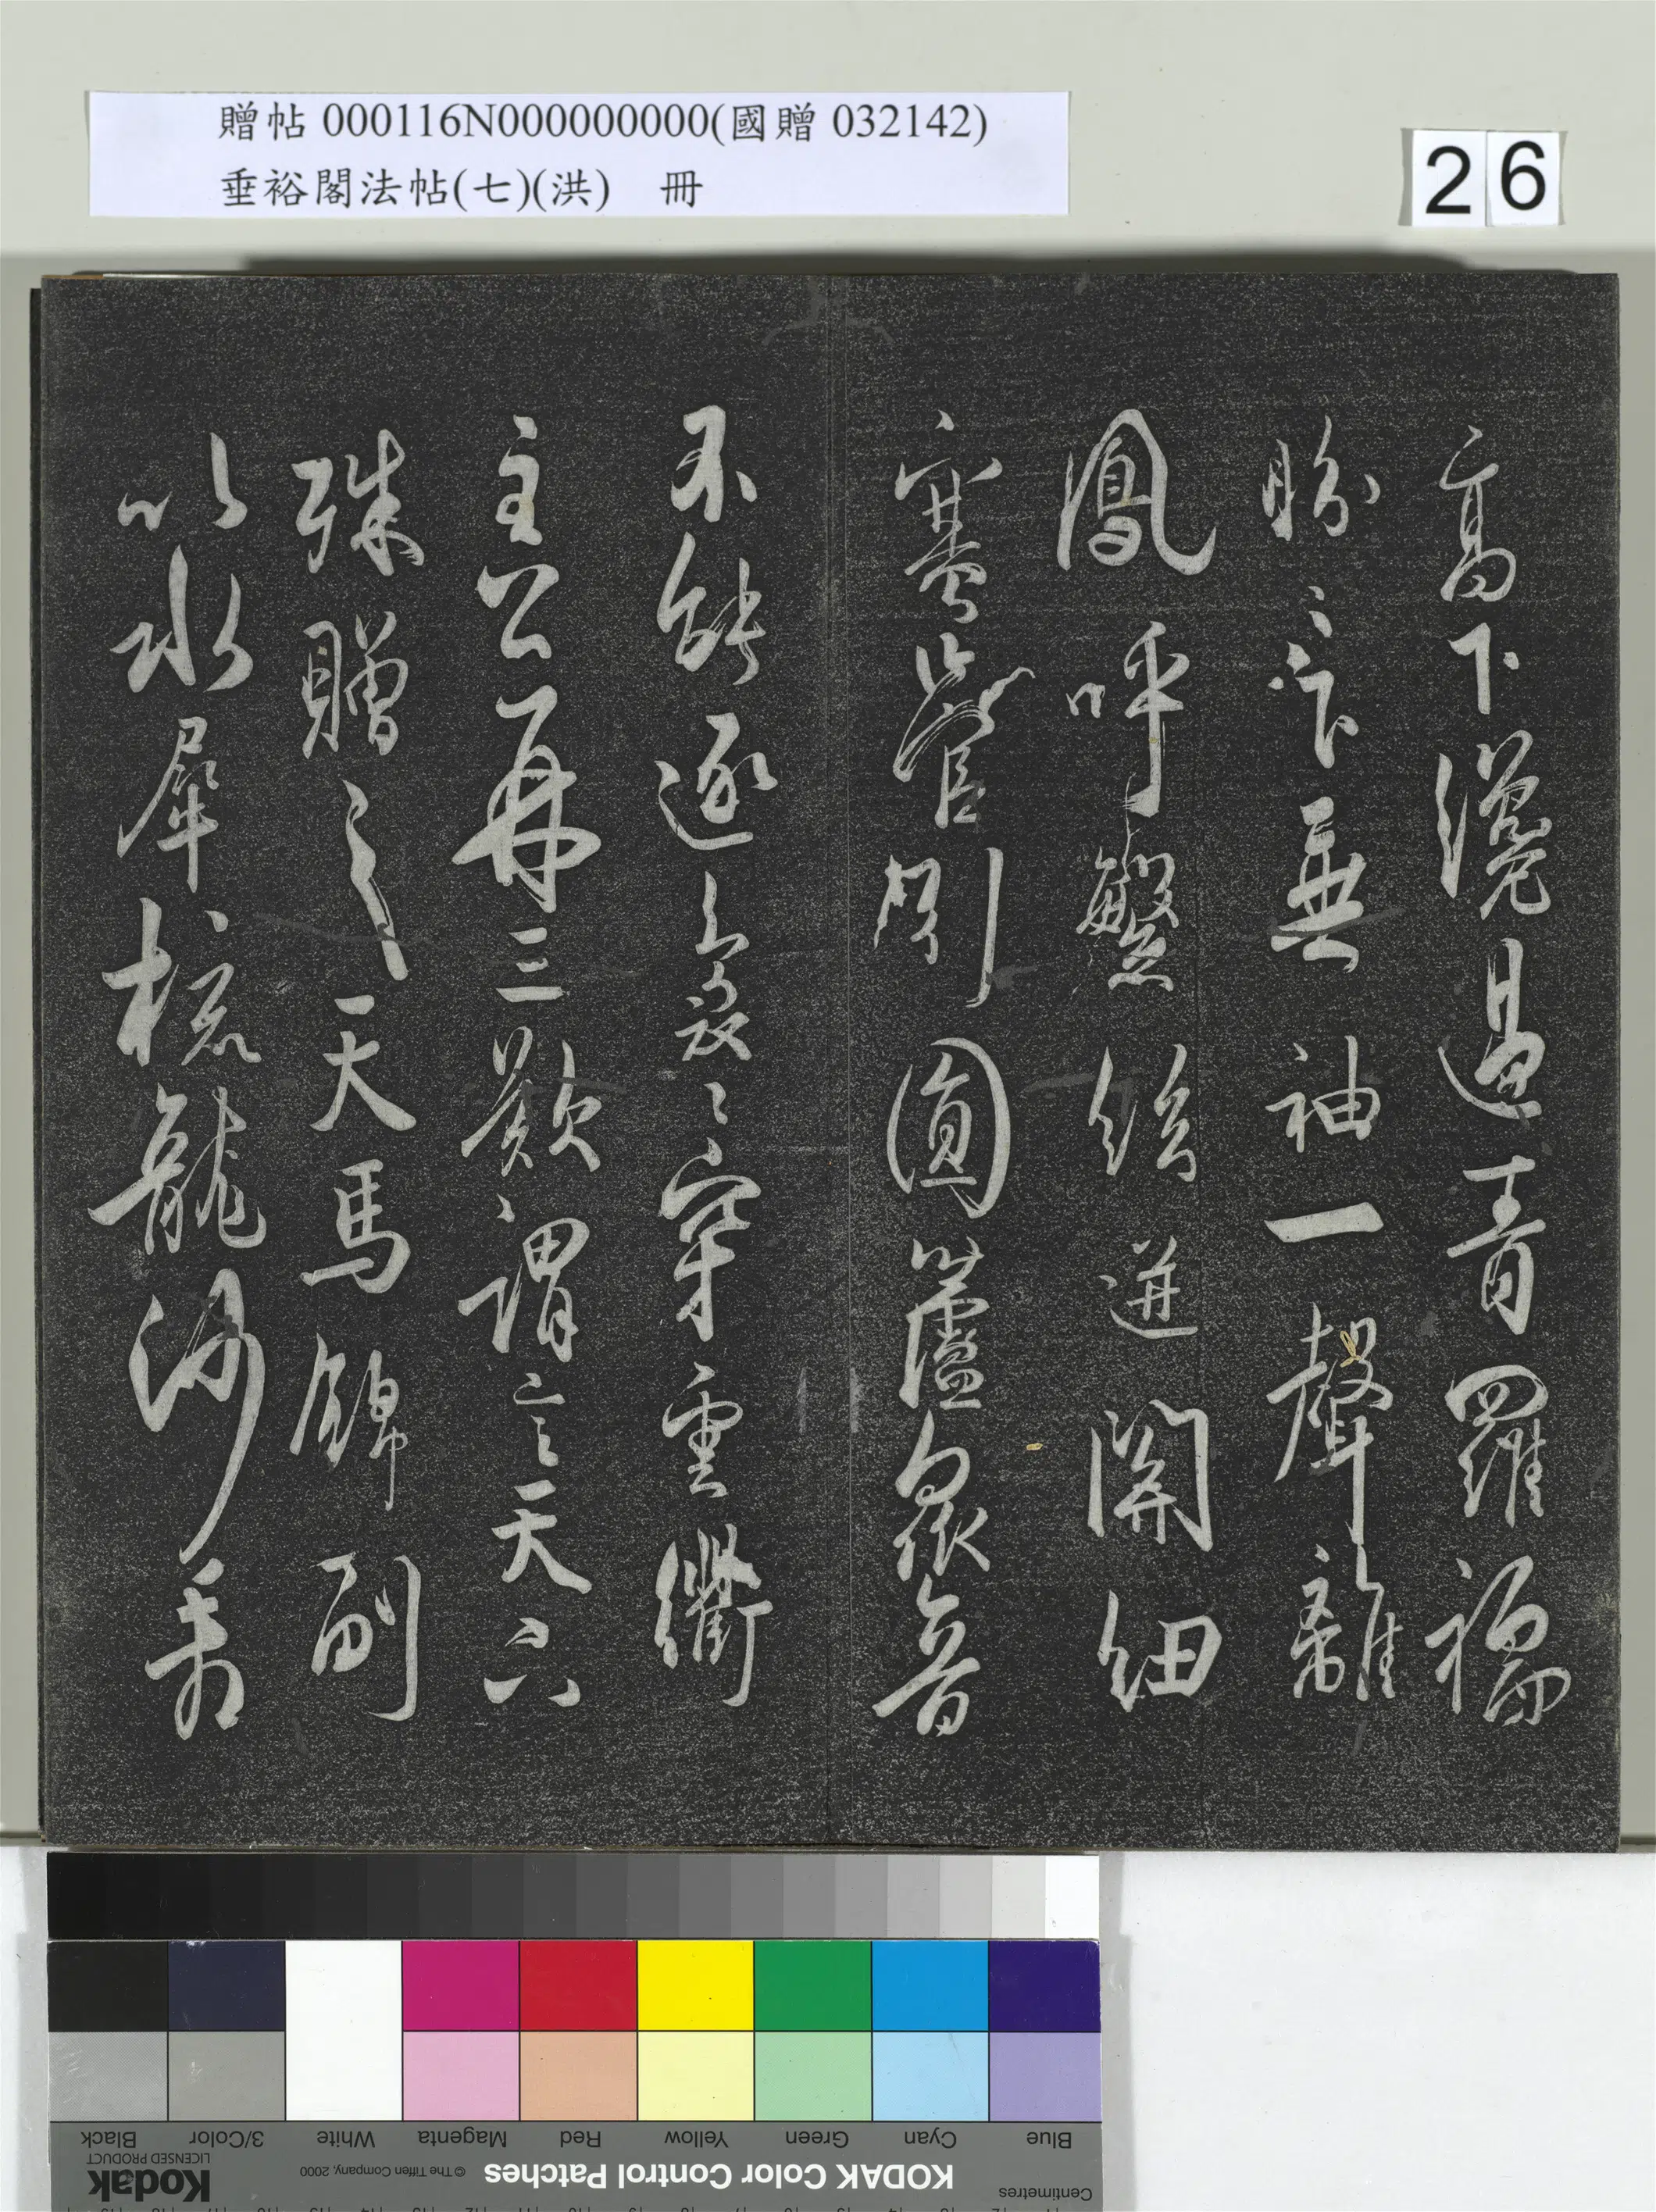 贈帖 000116N000000000(國贈 032142)
垂裕閣法帖(七)(洪) 冊
26
高下纔過青羅襦
盼〻乍垂袖一聲雛
鳳呼繁絃迸關紐
塞管圓蘆衆音
不能逐裊〻穿雲衢
主公再三歎謂言天下
殊贈之天馬錦副
以水犀梳龍沙看
Blue Cyan Green Yellow Red Magenta White 3/Color Black
Centimetres KODAK Color Control Patches © The Tiffen Company, 2000 Kodak
LICENSED PRODUCT